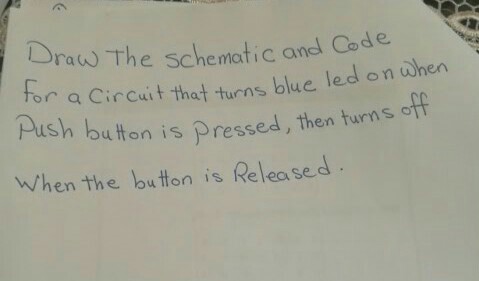 Draw The schematic and Code
for a Circuit that turns blue led on when
Push button is Pressed, then turns off
When the button is Released.